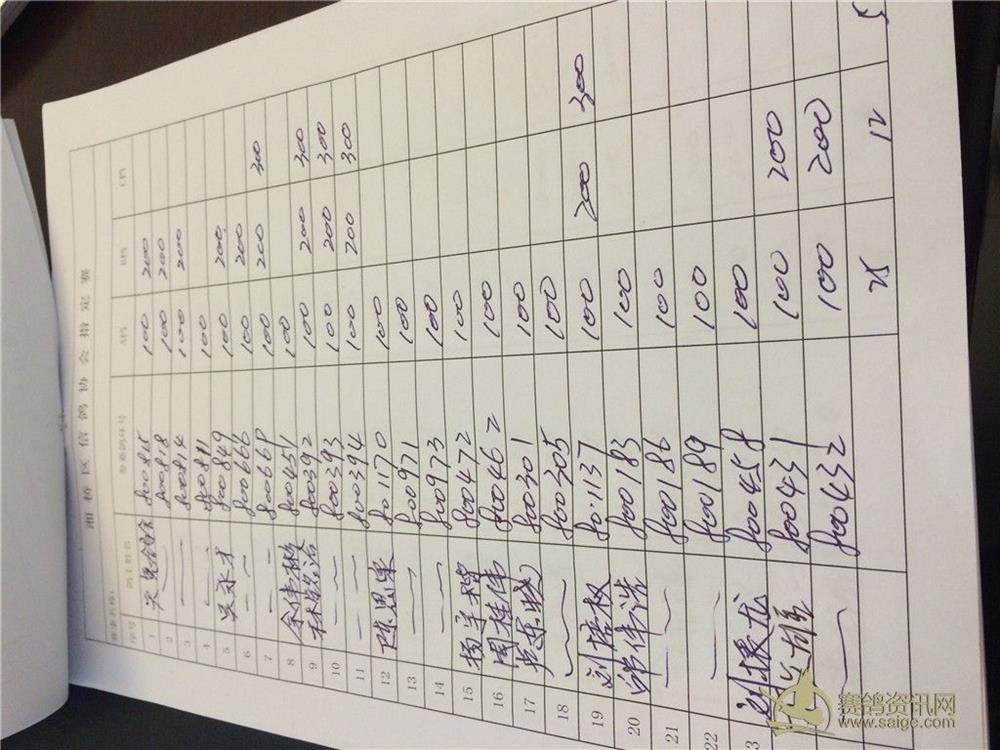 湘桥区信鸽协会指定赛
赛事名称:
序号 鸽主姓名 参赛鸽环号 A档 B档 C档
1 800815 100 200
2 〃 800818 100 200
3 〃 800814 100 200
4 〃 800811 100
5 800849 100 200
6 〃 800666 100 200
7 〃 800668 100 200 300
8 余伟彬 800451 100
9 林铭治 800392 100 200 300
10 〃 800393 100 200 300
11 〃 800394 100 200 300
12 陈思果 801170 100
13 〃 800971 100
14 〃 800973 100
15 800472 100
16 周桂伟 800462 100
17 800301 100
18 〃 800305 100
19 刘培权 801137 100 200 300
20 800183 100
21 〃 800186 100
22 〃 800189 100
3 800458 100
800431 100 200
〃 800432 100 200
25 12 5
赛鸽资讯网
www.saige.com